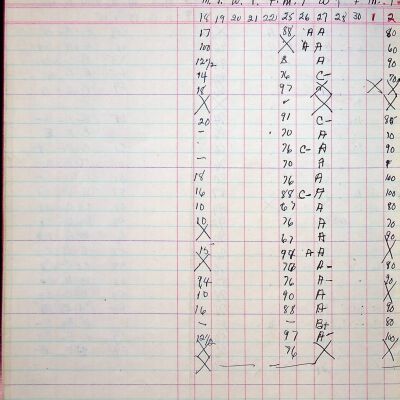 18 19 20 21 22 25 26 27 28 30 1 2
17 88 A A 80
100 X A A 60
12 1/2 8 A 90
14 76 C-
18 97 X X X
X X
20 91 C- 85
- 70 A 70
76 C- A 90
- 70 A
18 76 A 100
16 88 C- A 100
10 67 A 80
10 76 A 70
X 67 A
15 94 A A X
X A- 80
94 76 A-
10 90 A X
16 88 A 90
- - B+ 80
12 1/2 97 A- 100
X 76 X X
X